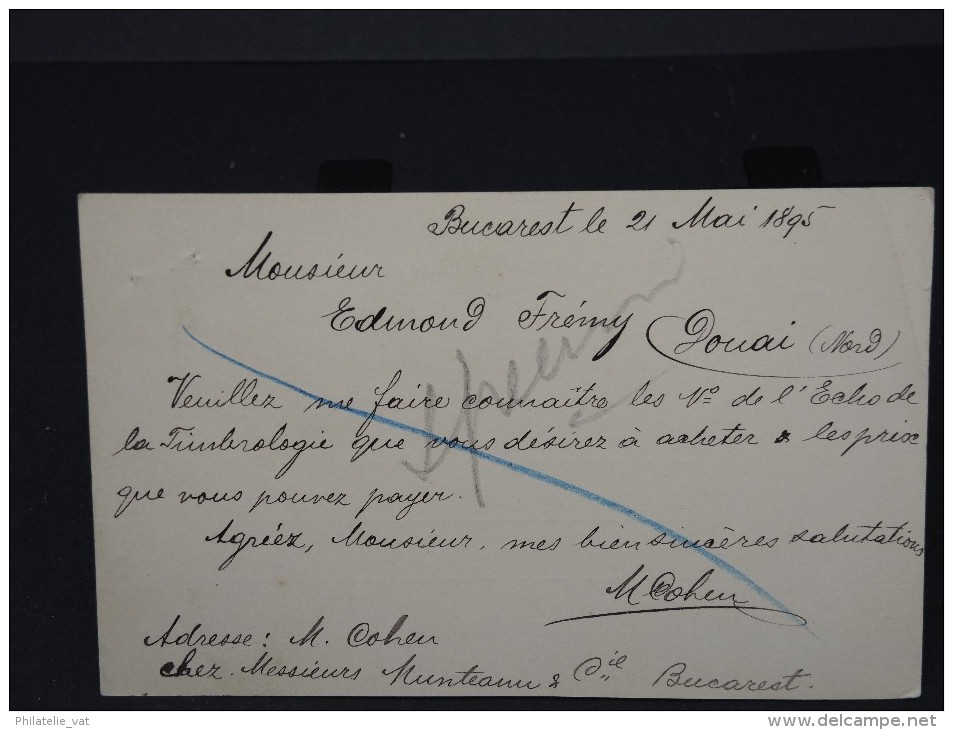 Bucarest le 21 Mai 1895
Monsieur
Edmond Frémy Douai (Nord)
Veuillez me faire connaître les Nº de l'Echo de
la Timbrologie que vous désirez à acheter & les prix
que vous pouvez payer.
Agréez, Monsieur, mes bien sincères salutations
M Cohen
Adresse: M. Cohen
chez Messieurs Munteanu & Cie Bucarest.
Philatelie_vat
delcampe.net